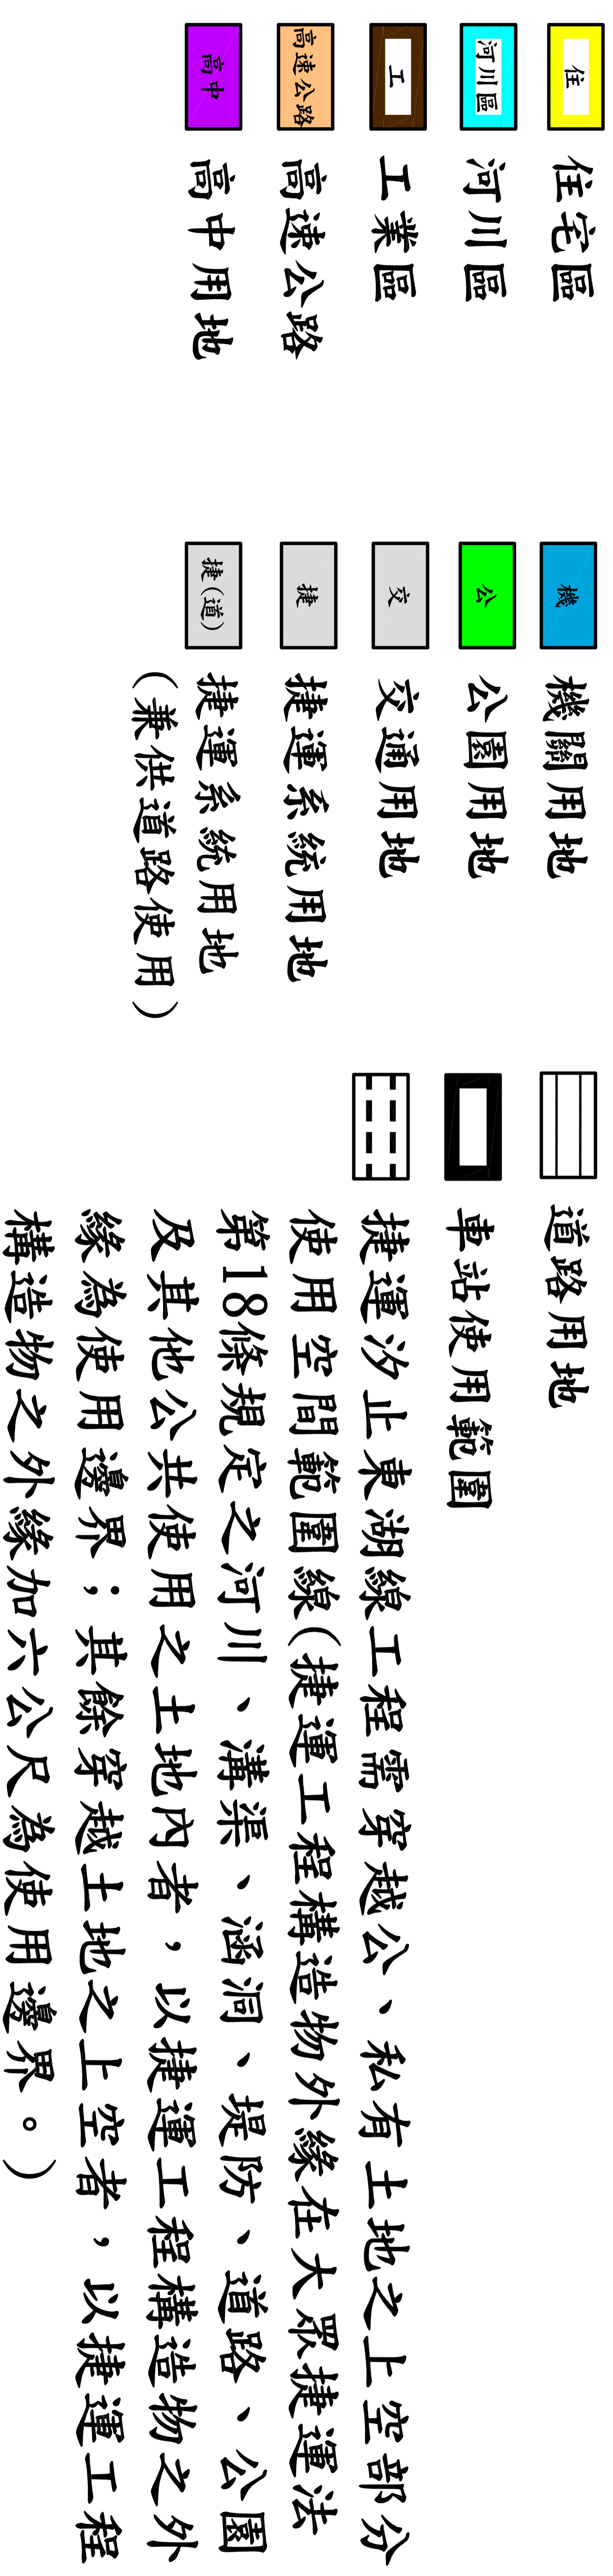 住 住宅區
河川區 河川區
工 工業區
高速公路 高速公路
高中 高中用地
機 機關用地
公 公園用地
交 交通用地
捷 捷運系統用地
捷(道) 捷運系統用地
(兼供道路使用)
道路用地
車站使用範圍
捷運汐止東湖線工程需穿越公、私有土地之上空部分
使用空間範圍線(捷運工程構造物外緣在大眾捷運法
第18條規定之河川、溝渠、涵洞、堤防、道路、公園
及其他公共使用之土地內者，以捷運工程構造物之外
緣為使用邊界；其餘穿越土地之上空者，以捷運工程
構造物之外緣加六公尺為使用邊界。)